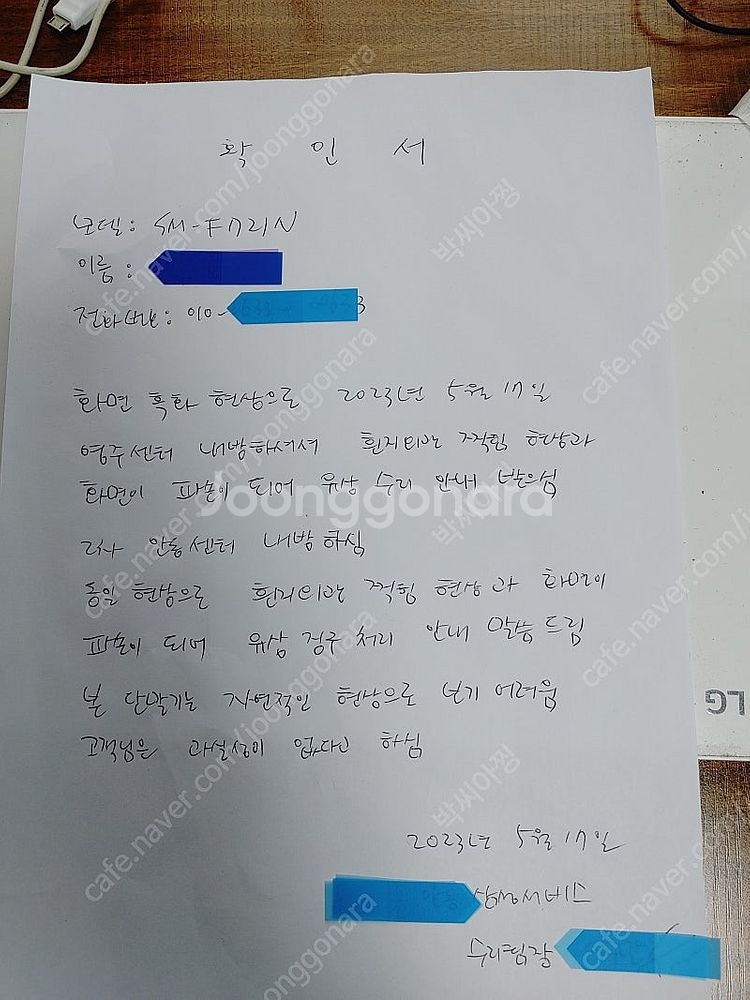 확 인 서
모델: SM-F721N
이름:
전화번호: 010-
화면 흑화 현상으로 2023년 5월 17일
영주센터 내방하셔서 힌지외관 찍힘 현상과
화면이 파손이 되어 유상 수리 안내 받으심
안동센터 내방하심
동일 현상으로 힌지외관 찍힘 현상과 화면이
파손이 되어 유상 청구 처리 안내 말씀드림
본 단말기는 자연적인 현상으로 보기 어려움
고객님은 과실성이 없다고 하심
2023년 5월 17일
삼성서비스
수리팀장
Joonggonara
cafe.naver.com/joonggonara
박씨아찡
LG